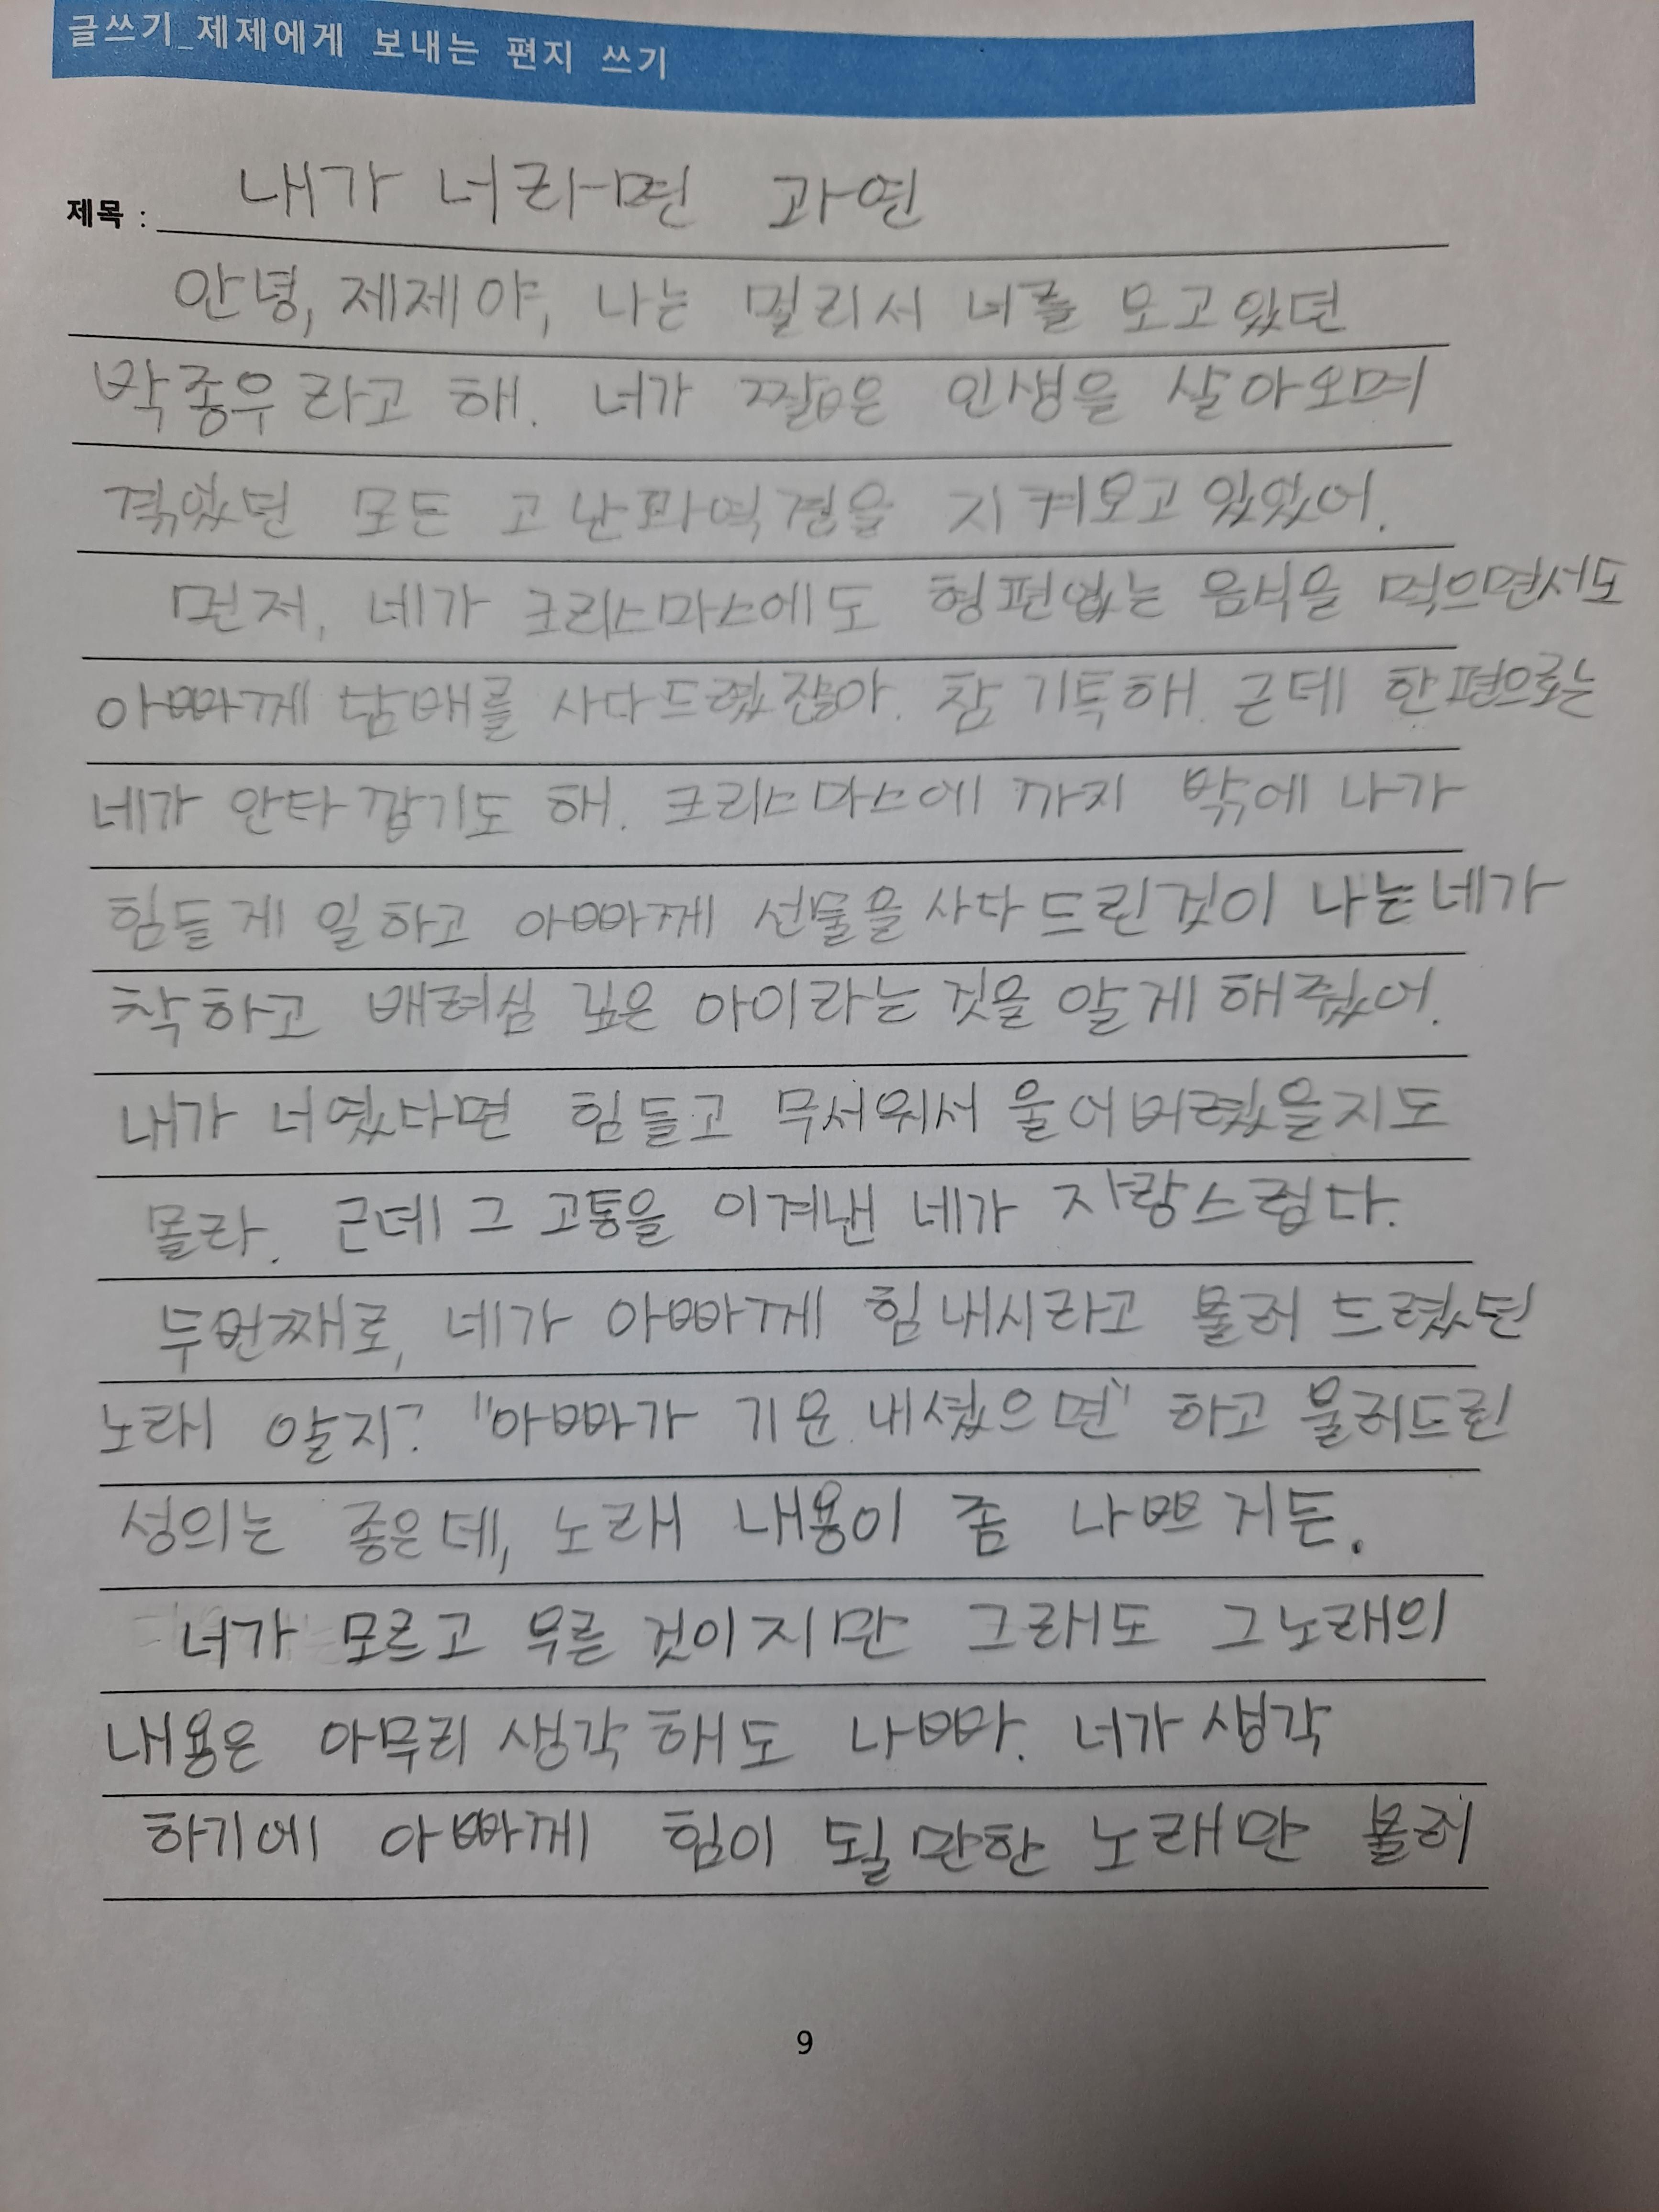 글쓰기_제제에게 보내는 편지 쓰기
제목 : 내가 너라면 과연
안녕, 제제야, 나는 멀리서 너를 보고있던
박종우라고 해. 너가 짧은 인생을 살아오며
겪었던 모든 고난과역경을 지켜보고 있었어.
먼저, 네가 크리스마스에도 형편없는 음식을 먹으면서도
아빠께 담배를 사다드렸잖아. 참 기특해. 근데 한편으로는
네가 안타깝기도 해. 크리스마스에 까지 밖에 나가
힘들게 일하고 아빠께 선물을 사다 드린것이 나는 네가
착하고 배려심 깊은 아이라는 것을 알게 해줬어.
내가 너였다면 힘들고 무서워서 울어버렸을지도
몰라. 근데 그 고통을 이겨낸 네가 자랑스럽다.
두번째로, 네가 아빠께 힘내시라고 불러 드렸던
노래 알지? "아빠가 기운 내셨으면" 하고 불러드린
성의는 좋은데, 노래 내용이 좀 나쁘거든.
너가 모르고 부른 것이지만 그래도 그노래의
내용은 아무리 생각해도 나빠. 너가 생각
하기에 아빠께 힘이 될 만한 노래만 불러
9